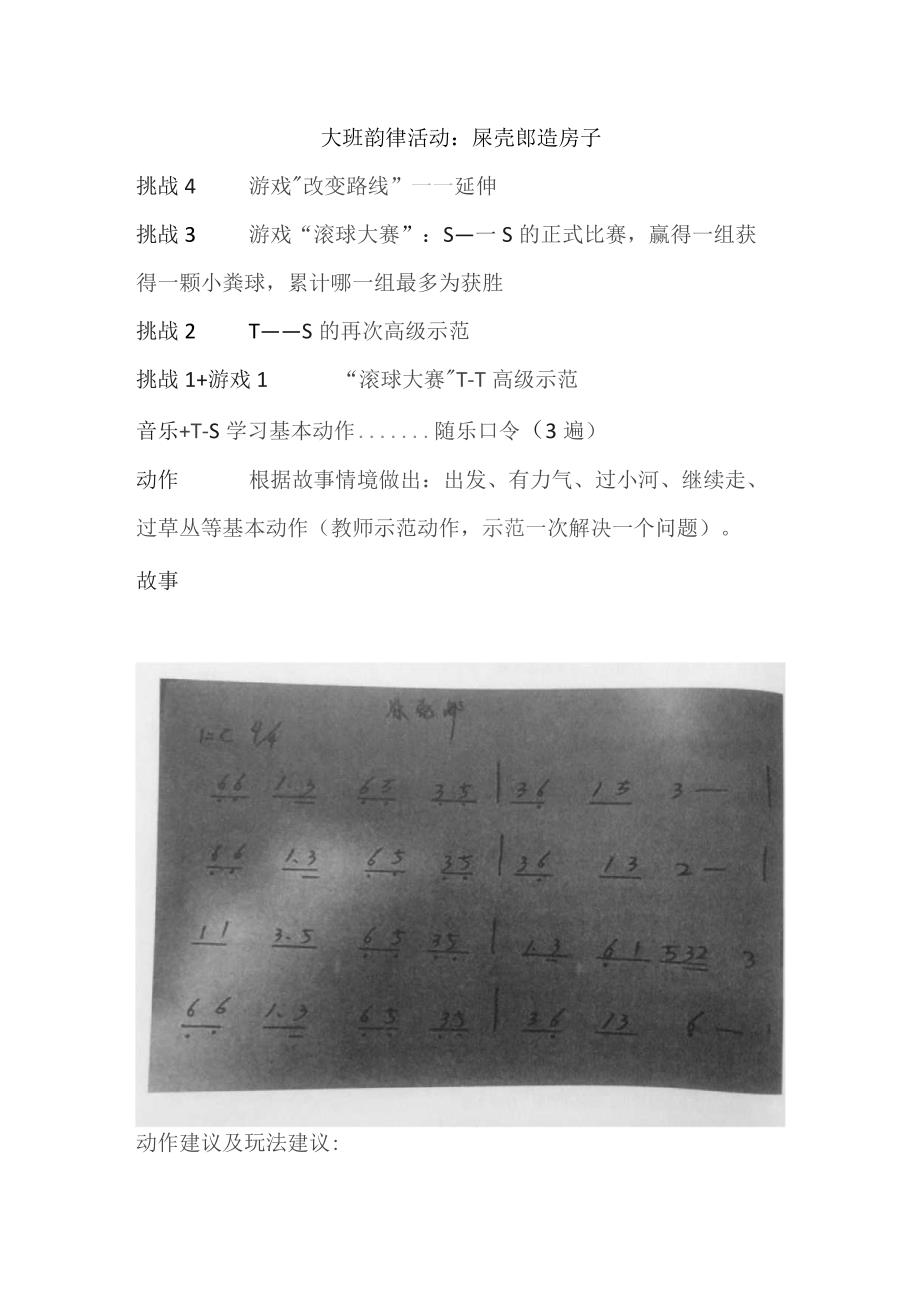 大班韵律活动：屎壳郎造房子
挑战 4 游戏"改变路线”一一延伸
挑战 3 游戏“滚球大赛”：S—一 S 的正式比赛，赢得一组获
得一颗小粪球，累计哪一组最多为获胜
挑战 2 T——S 的再次高级示范
挑战 1+游戏 1 “滚球大赛"T-T 高级示范
音乐+T-S 学习基本动作.......随乐口令（3 遍）
动作 根据故事情境做出：出发、有力气、过小河、继续走、
过草丛等基本动作（教师示范动作，示范一次解决一个问题）。
故事
屎壳郎
1=C 4/4
66 1.3 65 35 | 36 15 3 — |
66 1.3 65 35 | 36 13 2 — |
11 3.5 65 35 | 1.3 61 532 3
66 1.3 65 35 | 36 13 6 —
动作建议及玩法建议: